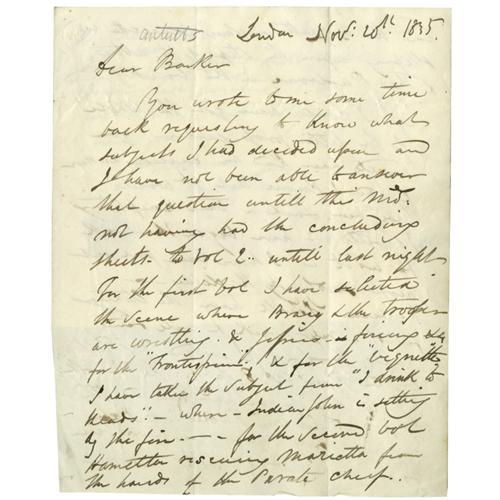 London Nov: 20th 1835.
Dear Barker
You wrote to me some time
back requesting to know what
subjects I had decided upon and
I have not been able to answer
that question untill this
not having had the concluding
sheets to Vol 2.. untill last night
For the first vol I have selected
the scene where & the trooper
are wrestling. & is firing
for the "Frontispiece", & for the "Vignette"
I have taken the subject from "I drink to
Heads" - where - Indian John is sitting
by the fire - - - for the second vol
rescuing Marietta from
the hands of the Pirate chief.